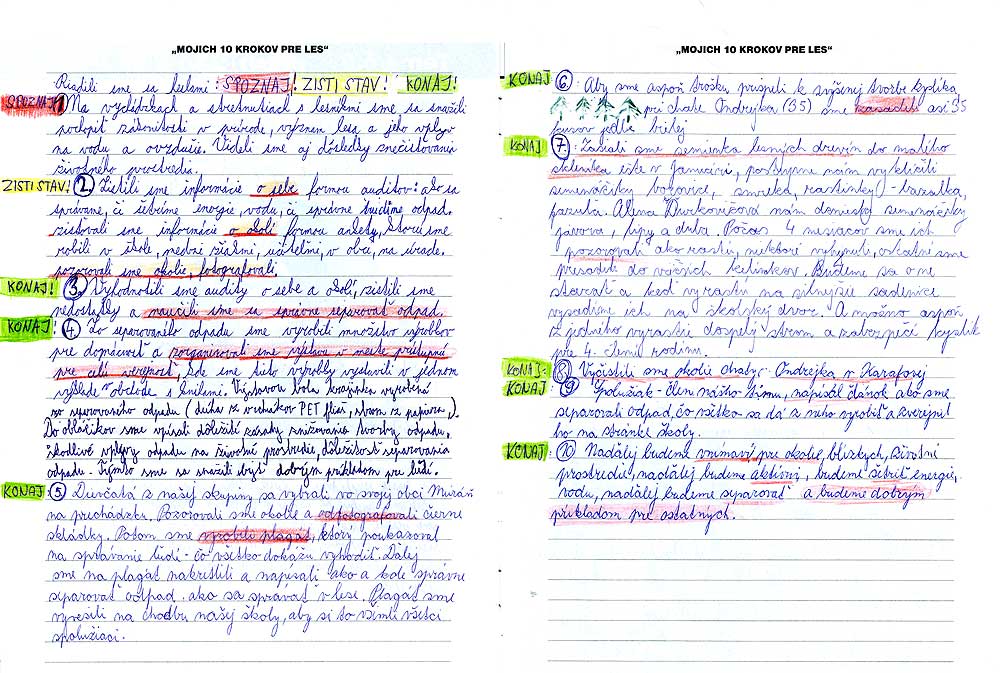 „MOJICH 10 KROKOV PRE LES“
Riadili sme sa heslami: SPOZNAJ! ZISTI STAV! KONAJ!
SPOZNAJ! 1. Na vychádzkach a stretnutiach s lesníkmi sme sa snažili
pochopiť zákonitosti v prírode, význam lesa a jeho vplyv
na vodu a ovzdušie. Videli sme aj dôsledky znečisťovania
životného prostredia.
ZISTI STAV! 2. Zistili sme informácie o sebe formou auditov: ako sa
správame, či šetríme energie, vodu, či správne triedime odpad.
Zisťovali sme informácie o okolí formou ankety, ktorú sme
robili v škole, medzi žiakmi, učiteľmi, v obci, na úrade.
pozorovali sme okolie, fotografovali.
KONAJ! 3. Vyhodnotili sme audity o sebe a okolí, zistili sme
nedostatky a naučili sme sa správne separovať odpad.
KONAJ! 4. Zo separovaného odpadu sme vyrobili množstvo výrobkov
pre domácnosť a zorganizovali sme výstavu v meste prístupnú
pre celú verejnosť, kde sme tieto výrobky vystavili v jednom
výklade v obchode s
Výstavou bola krajinka vyrobená
zo separovaného odpadu (dúha z vrchnákov PET fliaš, strom z papiera).
Do obláčikov sme vpísali dôležité zásady znižovania tvorby odpadu,
škodlivé vplyvy odpadu na životné prostredie, dôležitosť separovania
odpadu - Týmto sme sa snažili byť dobrým príkladom pre ľudí.
KONAJ! 5. Dievčatá z našej skupiny sa vybrali vo svojej obci Muráň
na prechádzku. Pozorovali sme okolie a odfotografovali čierne
skládky. Potom sme vyrobili plagát, ktorý poukazoval
na správanie ľudí - čo všetko dokážu vyhodiť. Ďalej
sme na plagát nakreslili a napísali ako a kde správne
separovať odpad, ako sa správať v lese. Plagát sme
vyvesili na chodbu našej školy, aby si to všimli všetci
spolužiaci.
„MOJICH 10 KROKOV PRE LES“
KONAJ 6. Aby sme aspoň trošku prispeli k zvýšenej tvorbe kyslíka
pri chate Ondrejka (BS) sme zasadili asi 35
kusov jedle bielej
KONAJ 7. Zasiali sme semienka lesných drevín do malého
skleníka ešte v januári, postupne nám vyklíčili
semenáčiky borovice, smreka, rastlinky - bazalka,
fazuľa. Alena Ďurkovičová nám doniesla semenáčiky
javora, lipy a duba. Počas 4 mesiacov sme ich
pozorovali ako rastú, niektoré vyhynuli, ostatné sme
presadili do väčších kelímkov. Budeme sa o ne
starať a keď vyrastú na silnejšie sadenice
vysadíme ich na školskej dvore. A možno aspoň
z jedného vyrastie dospelý strom a zabezpečí kyslík
pre 4. člennú rodinu.
KONAJ 8. Vyčistili sme okolie chaty Ondrejka v Karafovej
KONAJ 9. Spolužiak - člen nášho tímu, napísal článok ako sme
separovali odpad, čo všetko sa dá z neho vyrobiť a zverejnil
ho na stránke školy.
KONAJ 10. Naďalej budeme vnímaví pre okolie, blízkych, životné
prostredie, naďalej budeme aktívni, budeme šetriť energie,
vodu, naďalej budeme separovať a budeme dobrým
príkladom pre ostatných.